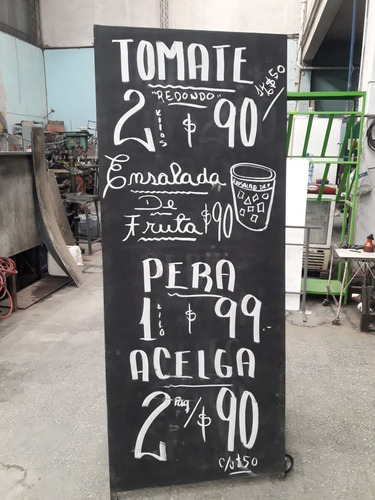 TOMATE
"REDONDO"
2 kilos $ 90
1k $50
Ensalada
De
Fruta $90
ENSALAD DE F
PERA
1 kilo $ 99.-
ACELGA
2 Paq/$90
c/u $50